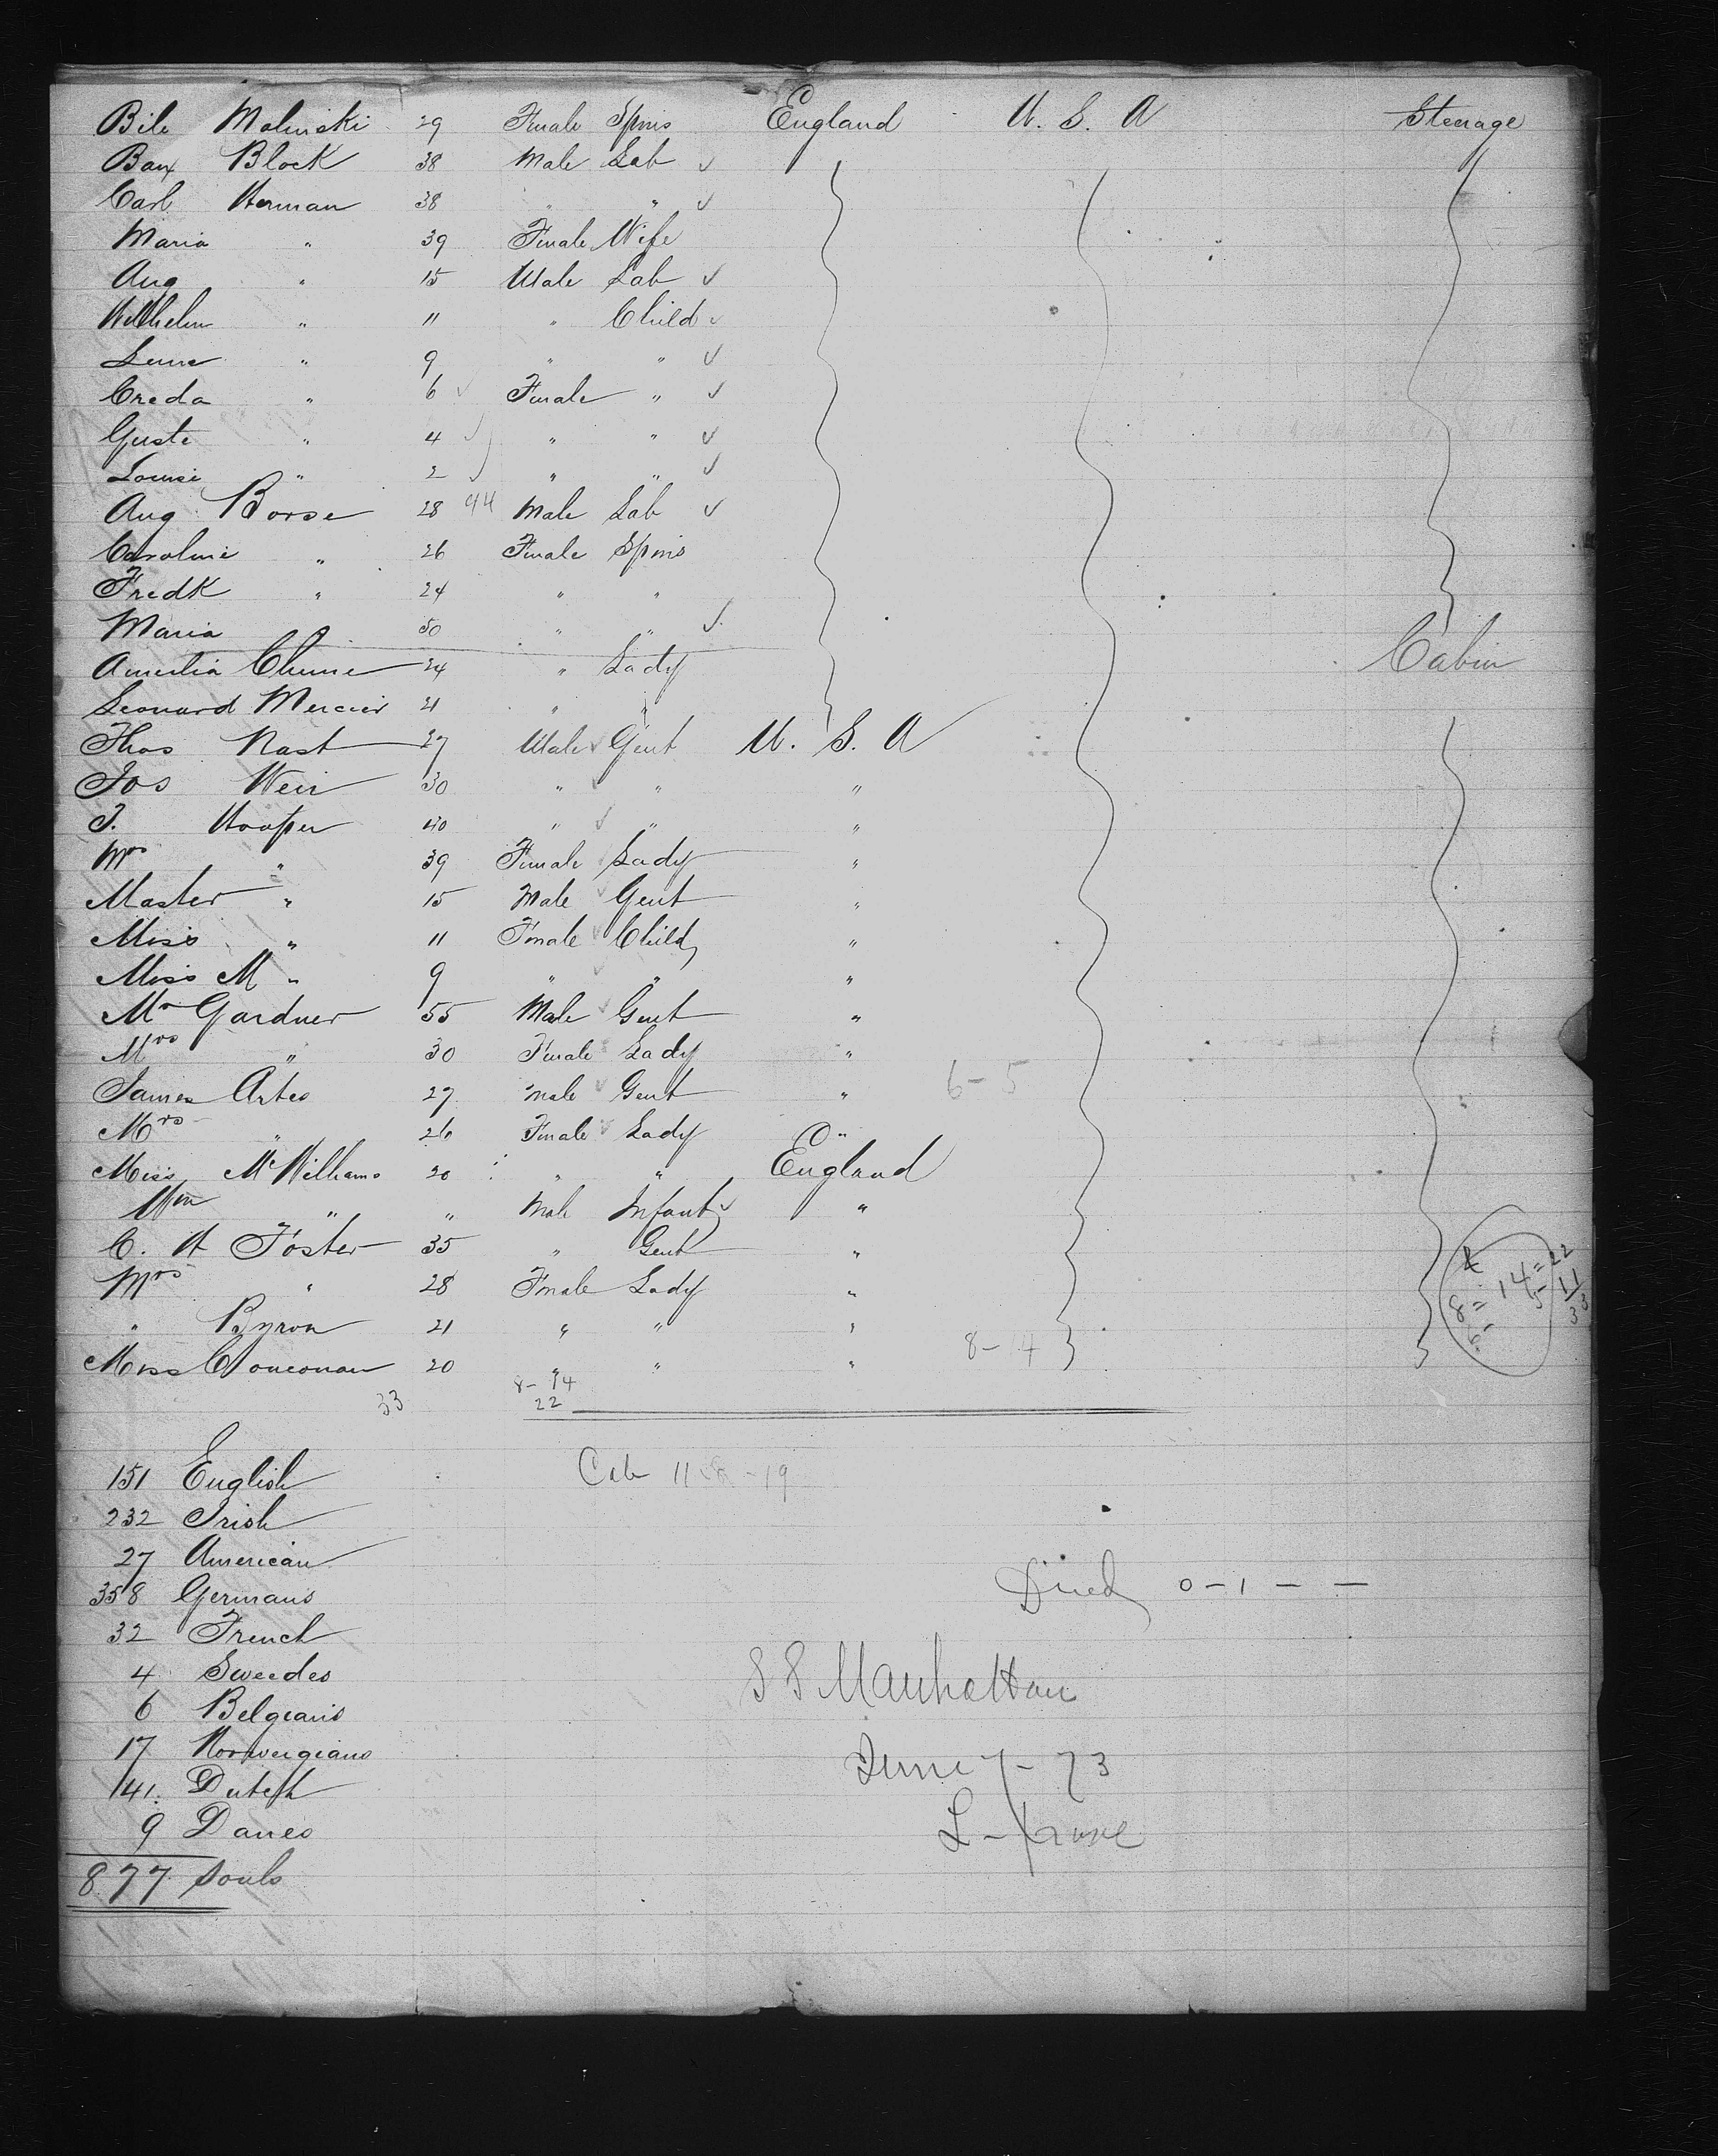 Bile Malinski 29 Female Spins England U. S. A Steerage
Bax Block 38 Male Lab ✓
Carl Herman 38 " " ✓
Maria " 39 Female Wife
Aug " 15 Male Lab ✓
Wilhelm " 11 " Child ✓
" 9 " " ✓
Creda " 6 ✓ Female " ✓
Guste " 4 ✓ " " ✓
Louise " 2 " " ✓
Aug Borse 28 44 Male Lab ✓
Caroline " 26 Female Spins
Fredk " 24 " "
Maria " 50 " " ✓
Amelia 24 " Lady Cabin
Leonard Mercier 21 " "
Thos Nast 27 Male ✓ Gent U. S. A
Jos Weir 30 " ✓ " "
J. Hooper 40 " ✓ " "
Mrs " 39 Female Lady "
Master " 15 Male ✓ Gent "
Miss " 11 Female ✓ Child "
Miss M " 9 " ✓ " "
Mr Gardner 55 Male ✓ Gent "
Mrs " 30 Female Lady "
James Artes 27 Male ✓ Gent " 6-5
Mrs " 26 Female ✓ Lady "
Miss McWilliams 20 " " England
Wm " " Male Infant ✓ "
C. H Foster 35 " Gent "
Mrs " 28 Female Lady "
" Byron 21 " " "
Miss 20 " " " 8-14
8 = 14 = 22
6 - 5 - 11
33
33 8-14
22
151 English Cab 11 - 19
232 Irish
27 American
358 Germans Died 0 - 1 - -
32 French
4 Sweedes S S Manhattan
6 Belgians
17 Norweigians June 7 - 73
141. Dutch
9 Danes L-pool
877 souls